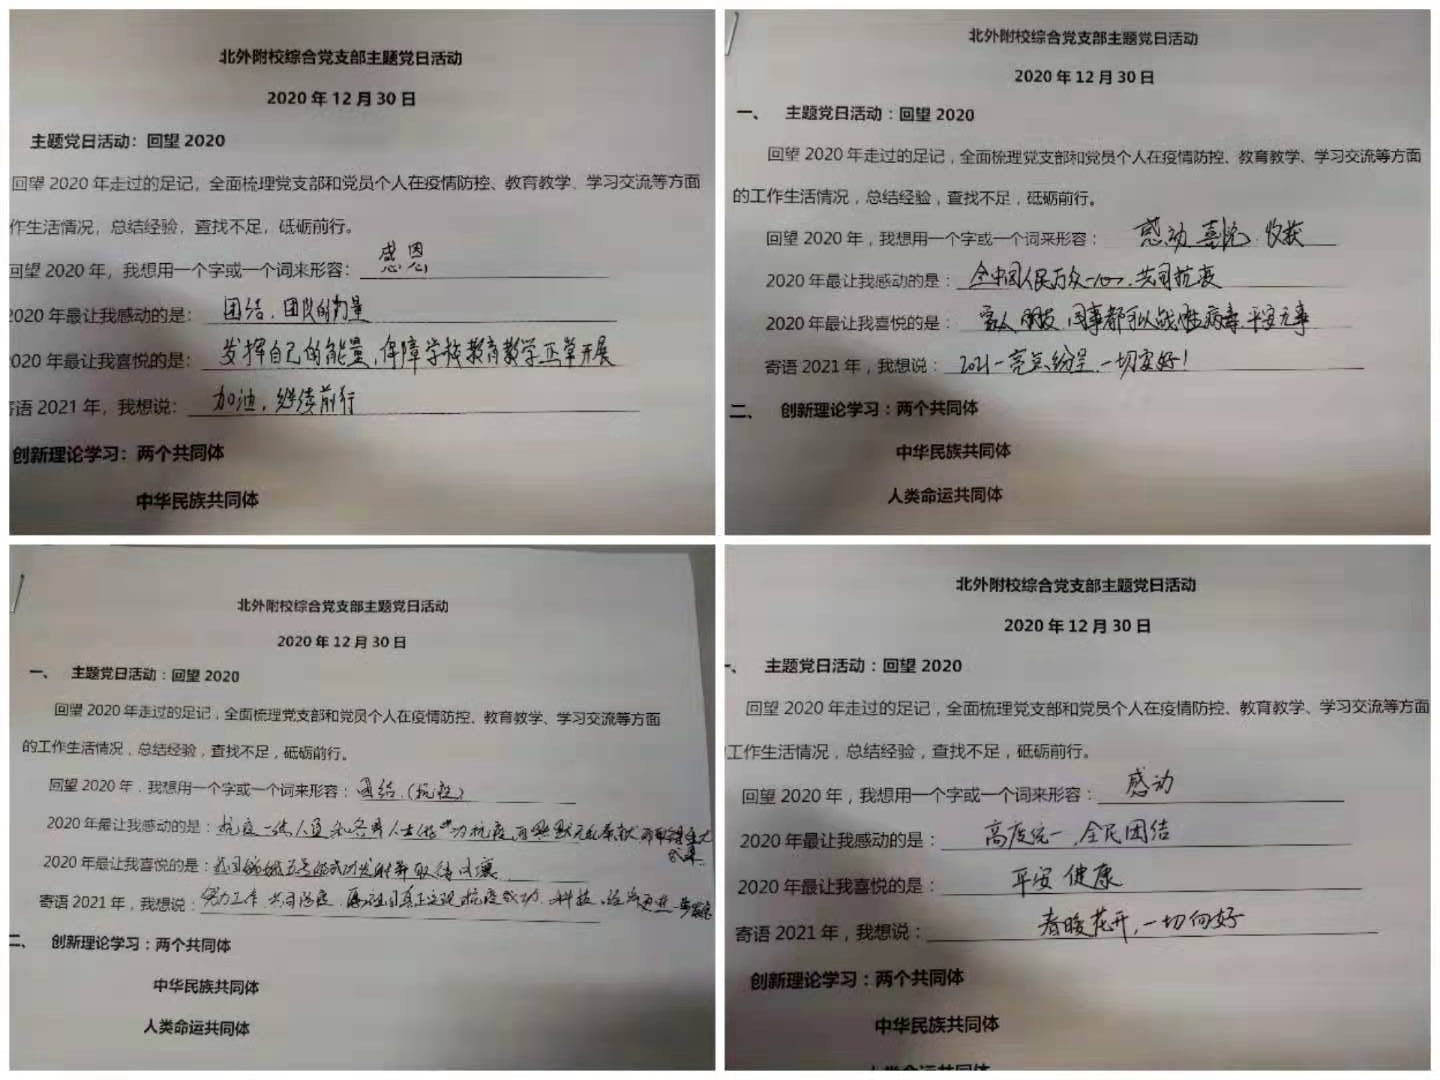 北外附校综合党支部主题党日活动
2020 年 12 月 30 日
主题党日活动：回望 2020
回望 2020 年走过的足记，全面梳理党支部和党员个人在疫情防控、教育教学、学习交流等方面
作生活情况，总结经验，查找不足，砥砺前行。
回望 2020 年，我想用一个字或一个词来形容：感恩
2020 年最让我感动的是：团结、团队的力量
2020 年最让我喜悦的是：发挥自己的能量，保障学校教育教学正常开展
寄语 2021 年，我想说：加油，继续前行
创新理论学习：两个共同体
中华民族共同体
北外附校综合党支部主题党日活动
2020 年 12 月 30 日
一、 主题党日活动：回望 2020
回望 2020 年走过的足记，全面梳理党支部和党员个人在疫情防控、教育教学、学习交流等方面
的工作生活情况，总结经验，查找不足，砥砺前行。
回望 2020 年，我想用一个字或一个词来形容：感动 喜悦 收获
2020 年最让我感动的是：全中国人民万众一心，共同抗疫
2020 年最让我喜悦的是：家人 朋友 同事都 战胜病毒 平安无事
寄语 2021 年，我想说：2021 亮点纷呈，一切安好！
二、 创新理论学习：两个共同体
中华民族共同体
人类命运共同体
北外附校综合党支部主题党日活动
2020 年 12 月 30 日
一、 主题党日活动：回望 2020
回望 2020 年走过的足记，全面梳理党支部和党员个人在疫情防控、教育教学、学习交流等方面
的工作生活情况，总结经验，查找不足，砥砺前行。
回望 2020 年，我想用一个字或一个词来形容：团结（抗疫）
2020 年最让我感动的是：抗疫一线人员和各界人士
2020 年最让我喜悦的是：我国嫦娥五号成功发射并取得月壤
寄语 2021 年，我想说：努力工作 共同 抗疫成功，科技、经济
二、 创新理论学习：两个共同体
中华民族共同体
人类命运共同体
北外附校综合党支部主题党日活动
2020 年 12 月 30 日
、 主题党日活动：回望 2020
回望 2020 年走过的足记，全面梳理党支部和党员个人在疫情防控、教育教学、学习交流等方面
工作生活情况，总结经验，查找不足，砥砺前行。
回望 2020 年，我想用一个字或一个词来形容：感动
2020 年最让我感动的是：高度统一，全民团结
2020 年最让我喜悦的是：平安 健康
寄语 2021 年，我想说：春暖花开，一切向好
创新理论学习：两个共同体
中华民族共同体